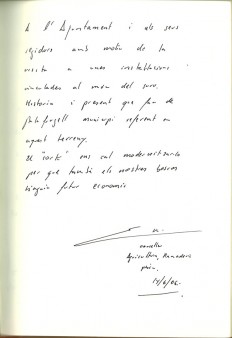 A l'Ajuntament i als seus
regidors amb motiu de la
visita a unes instal·lacions
vinculades al món del suro.
Història i present que fan de
Palafrugell municipi referent en
aquest terreny.
El "sector" ens cal modernitzar-lo
per què també els nostres boscos
tinguin futur econòmic
Conseller
Agricultura, Ramaderia
Pesca.